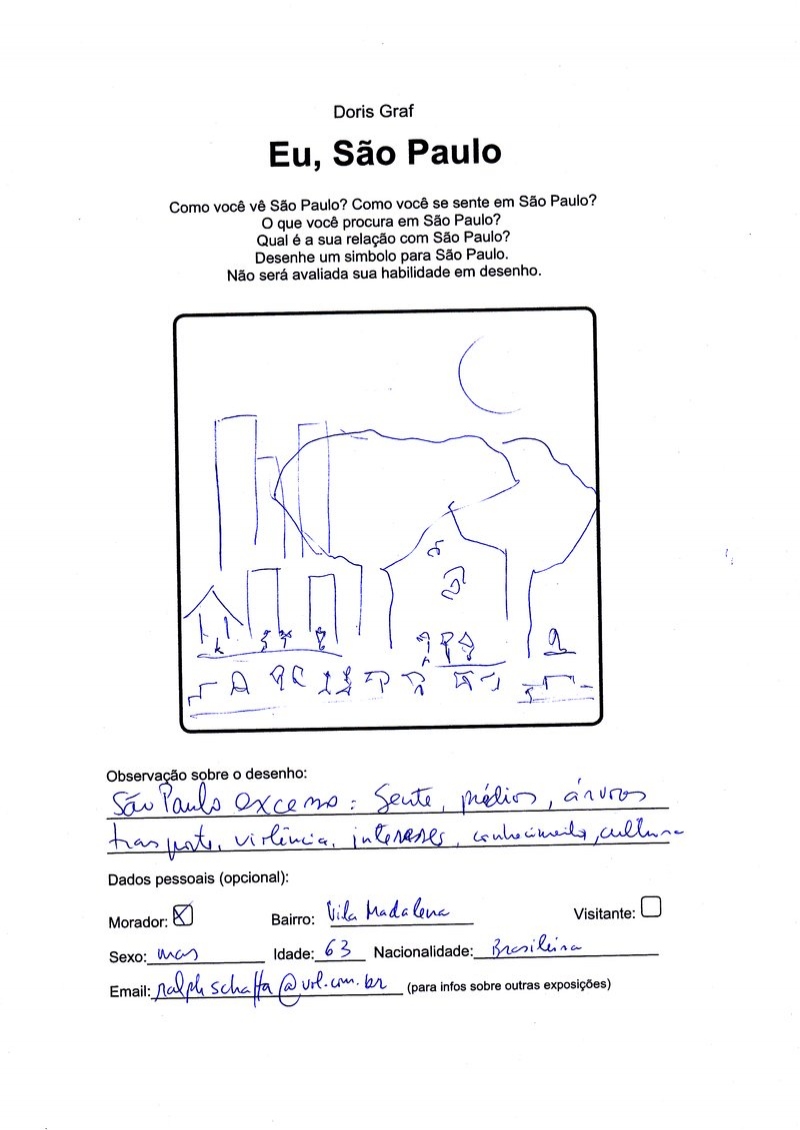 Doris Graf
Eu, São Paulo
Como você vê São Paulo? Como você se sente em São Paulo?
O que você procura em São Paulo?
Qual é a sua relação com São Paulo?
Desenhe um simbolo para São Paulo.
Não será avaliada sua habilidade em desenho.
Observação sobre o desenho:
São Paulo excesso: Gente, prédios, árvores
trasporte, violência, interesses, conhecimento, cultura
Dados pessoais (opcional):
Morador: X Bairro: Vila Madalena Visitante:
Sexo: mas Idade: 63 Nacionalidade: Brasileira
Email: ralphschaffa@uol.com.br (para infos sobre outras exposições)